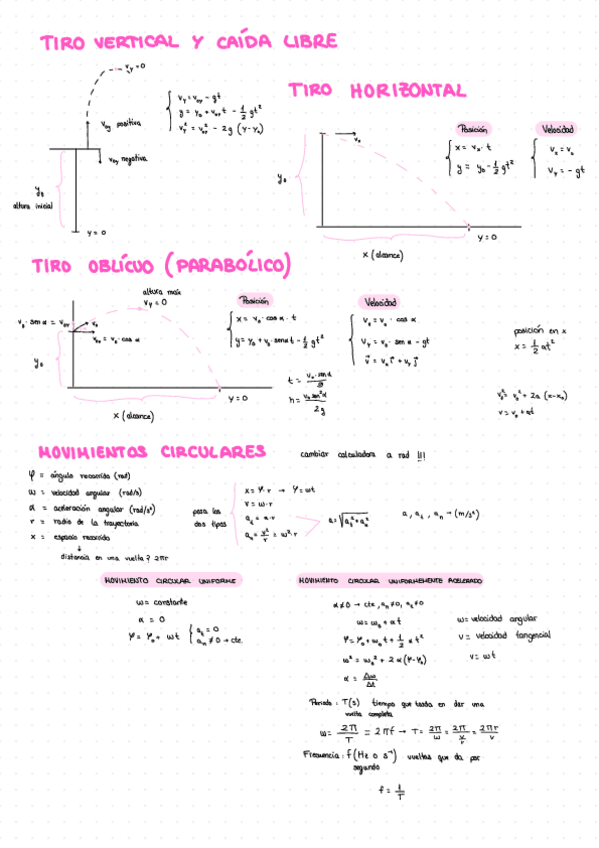 TIRO VERTICAL Y CAÍDA LIBRE
v_y = 0
v_oy positiva
v_oy negativa
y_0
altura inicial
y = 0
v_y = v_oy - gt
y = y_0 + v_oy t - 1/2 gt²
v_y² = v_oy² - 2g (y-y_0)
TIRO HORIZONTAL
v_x
y_0
y = 0
x (alcance)
Posición
x = v_x · t
y = y_0 - 1/2 gt²
Velocidad
v_x = v_x
v_y = - gt
TIRO OBLÍCUO (PARABÓLICO)
altura max
v_y = 0
v_0 · sen α = v_oy
v_0
v_ox = v_0 · cos α
y_0
y = 0
x (alcance)
Posición
x = v_0 · cos α · t
y = y_0 + v_0 · sen α t - 1/2 gt²
t = v_0 · sin α / g
h = v_0 sen² α / 2g
Velocidad
v_x = v_0 · cos α
v_y = v_0 · sen α - gt
v⃗ = v_x i⃗ + v_y j⃗
posición en x
x = 1/2 at²
v² = v_0² + 2a (x-x_0)
v = v_0 + at
MOVIMIENTOS CIRCULARES
cambiar calculadora a rad !!!
φ = ángulo recorrido (rad)
ω = velocidad angular (rad/s)
α = aceleración angular (rad/s²)
r = radio de la trayectoria
x = espacio recorrido
↓
distancia en una vuelta? 2πr
para los
dos tipos
x = φ · r → φ = ωt
v = ω · r
a_t = α · r
a_n = v²/r = ω² · r
a = √a_t² + a_n²
a, a_t, a_n → (m/s²)
MOVIMIENTO CIRCULAR UNIFORME
ω = constante
α = 0
φ = φ_0 + ωt
a_t = 0
a_n ≠ 0 → cte.
MOVIMIENTO CIRCULAR UNIFORMEMENTE ACELERADO
α ≠ 0 → cte, a_n ≠ 0, a_t ≠ 0
ω = ω_0 + αt
φ = φ_0 + ω_0 t + 1/2 α t²
ω² = ω_0² + 2α (φ-φ_0)
α = Δω/Δt
ω = velocidad angular
v = velocidad tangencial
v = ωt
Periodo : T(s) tiempo que tarda en dar una
vuelta completa
ω = 2π/T = 2πf → T = 2π/ω = 2π/(v/r) = 2πr/v
Frecuencia : f (Hz o s⁻¹) vueltas que da por
segundo
f = 1/T